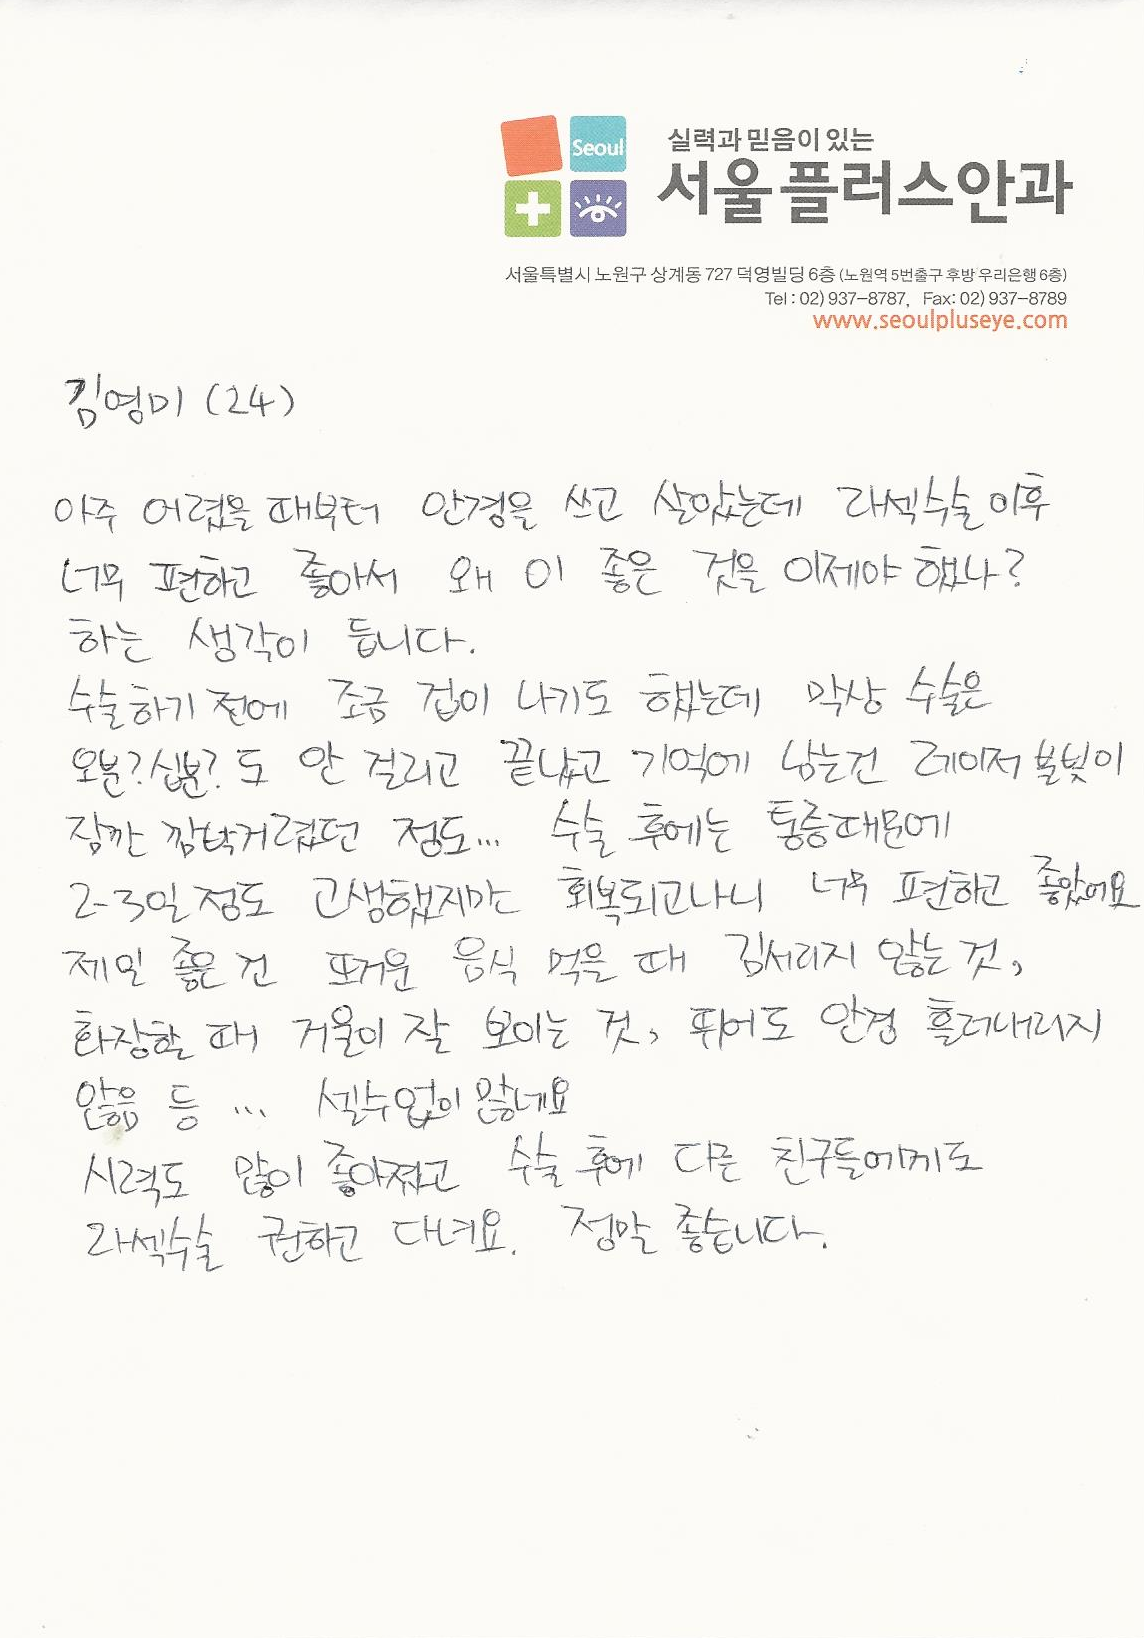 Seoul
실력과 믿음이 있는
서울플러스안과
서울특별시 노원구 상계동 727 덕영빌딩 6층 (노원역 5번출구 후방 우리은행 6층)
Tel : 02) 937-8787, Fax: 02) 937-8789
www.seoulpluseye.com
김영미 (24)
아주 어렸을 때부터 안경을 쓰고 살았는데 라섹수술 이후
너무 편하고 좋아서 왜 이 좋은 것을 이제야 했나?
하는 생각이 듭니다.
수술하기 전에 조금 겁이 나기도 했는데 막상 수술은
오분? 십분? 도 안 걸리고 끝났고 기억에 남는건 레이저 불빛이
잠깐 깜박거렸던 정도... 수술 후에는 통증때문에
2-3일 정도 고생했지만 회복되고나니 너무 편하고 좋았어요
제일 좋은 건 뜨거운 음식 먹을 때 김서리지 않는 것,
화장할 때 거울이 잘 보이는 것, 뛰어도 안경 흘러내리지
않음 등 ... 셀수없이 많네요
시력도 많이 좋아졌고 수술 후에 다른 친구들에게도
라섹수술 권하고 다녀요. 정말 좋습니다.